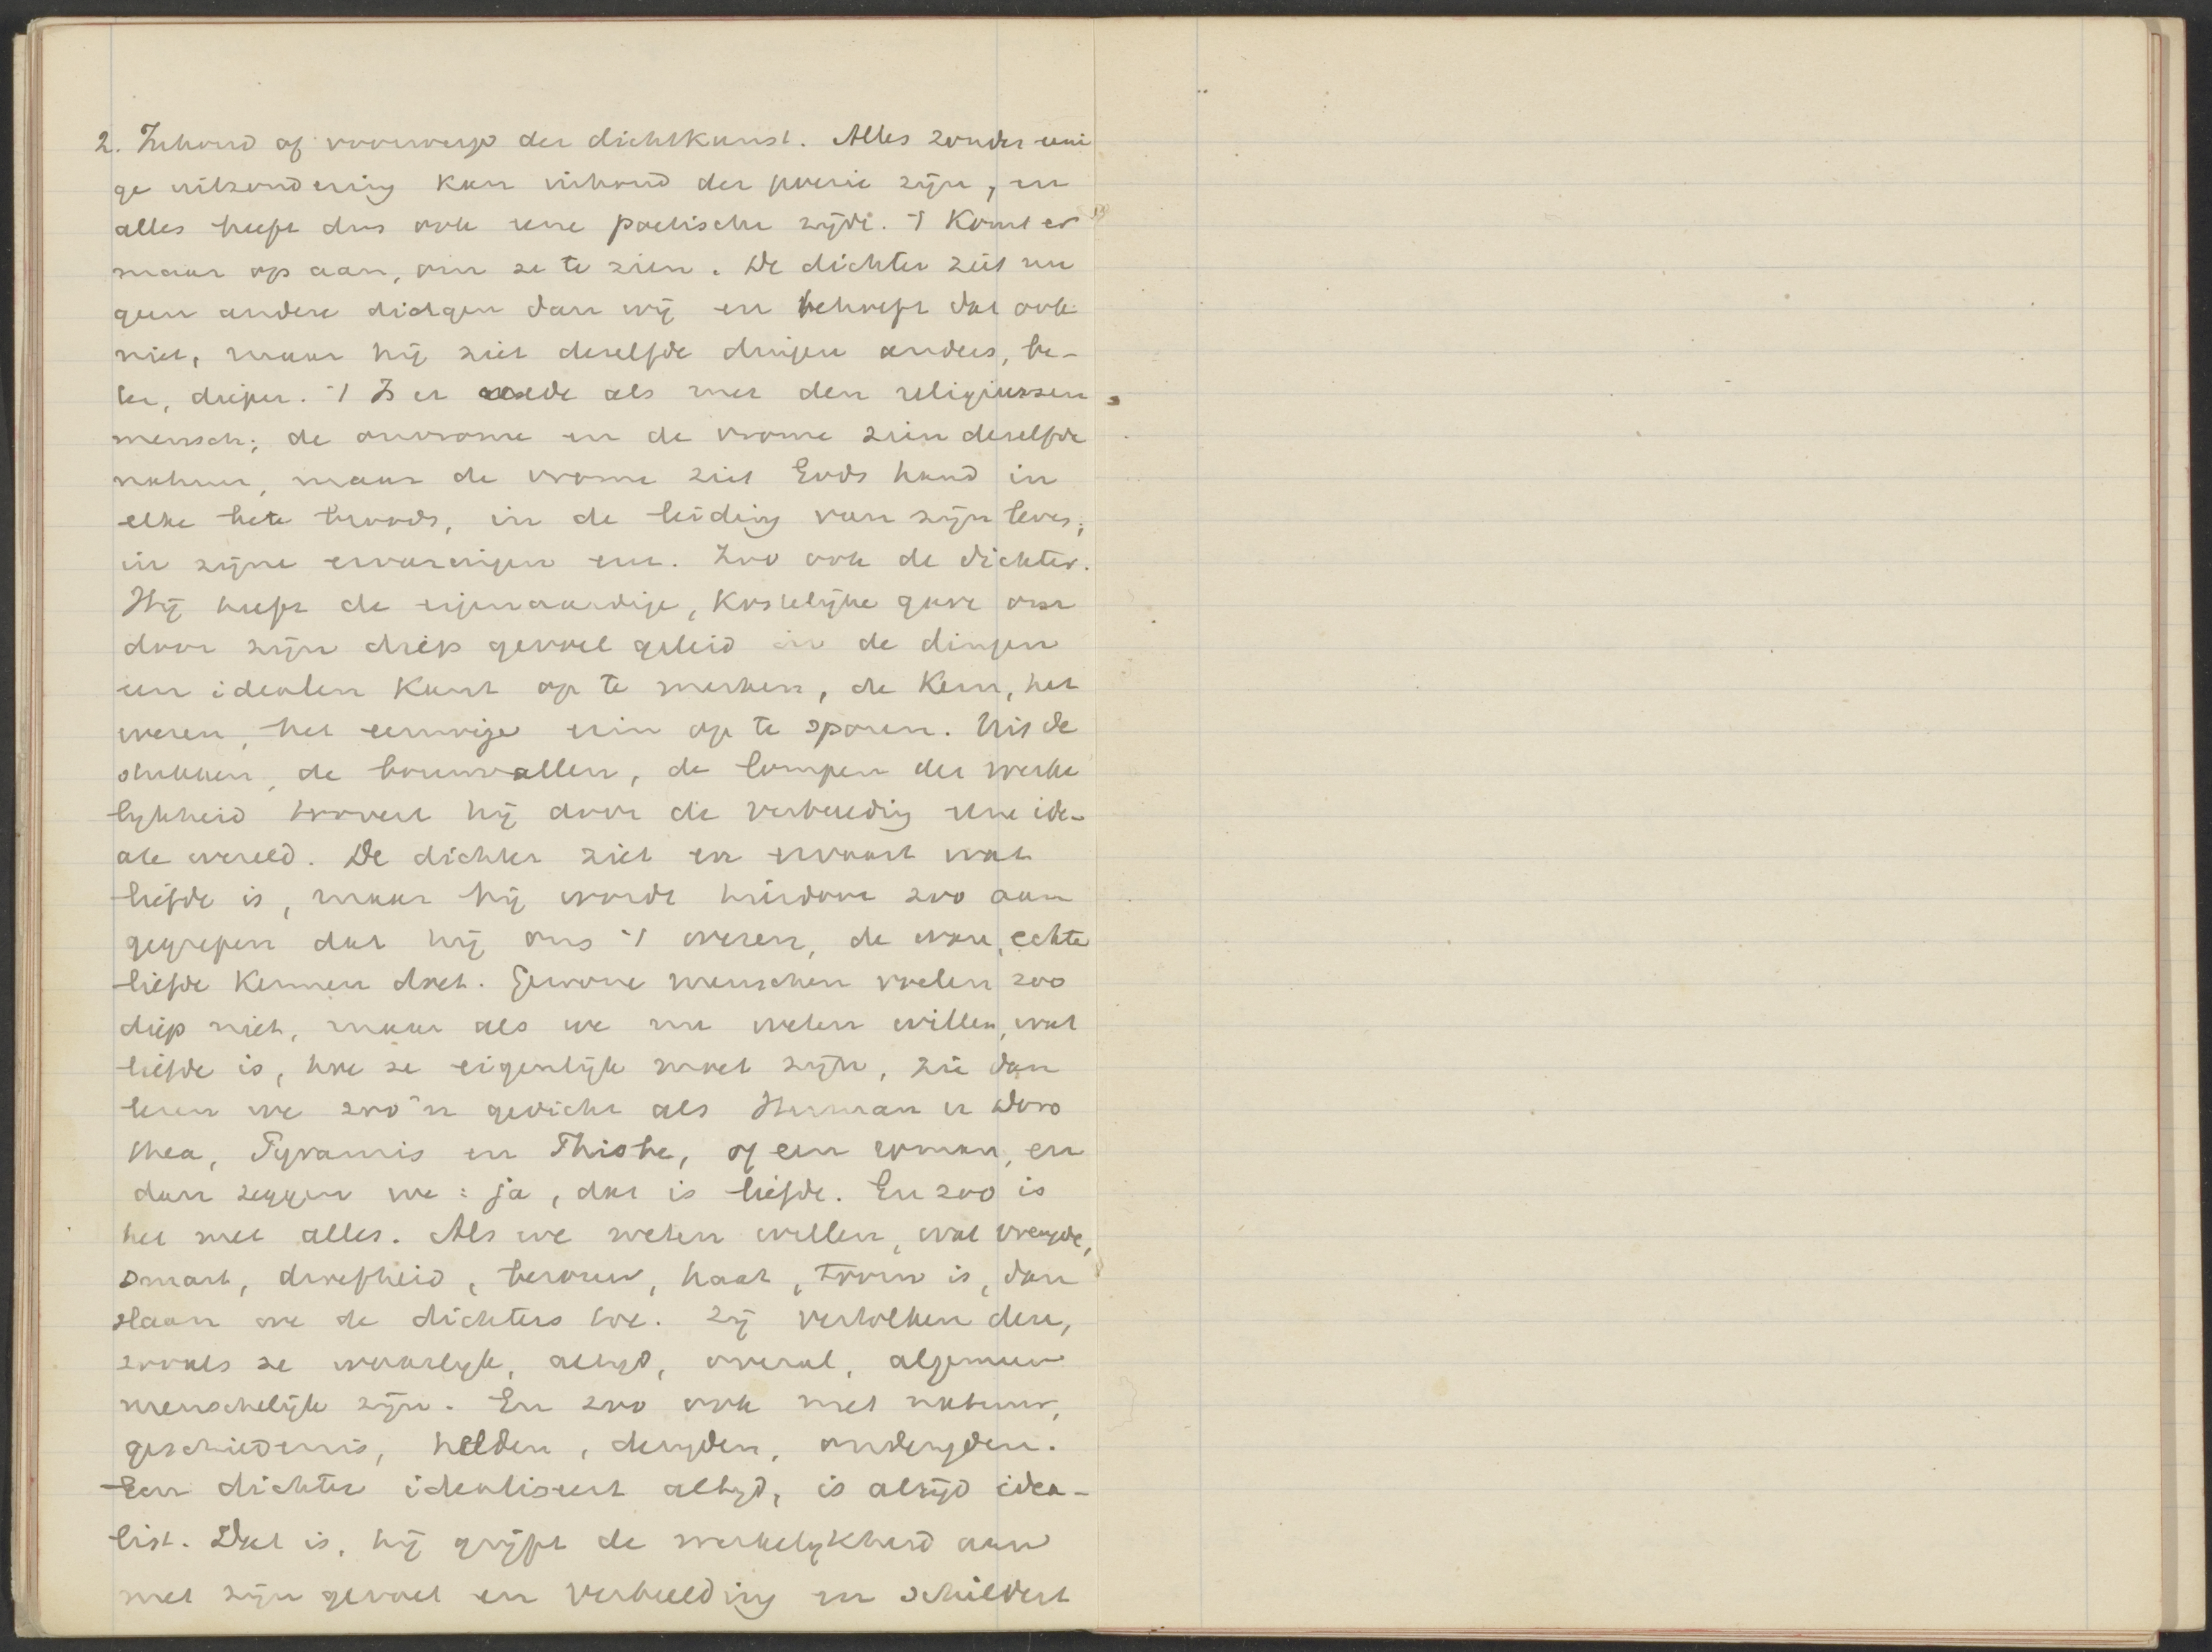 2. Inhoud of voorwerp der dichtkunst. Alles zonder eeni
ge uitzondering kan inhoud der poezie zijn, en
alles heeft dus ook eene poetische zijde. 't Komt er
maar op aan, om ze te zien. De dichter ziet nu
geen andere dingen dan wij en behoeft dat ook
niet, maar hij ziet dezelfde dingen anders, be-
ter, dieper. 't Is er mede als met den religieuzen
mensch; de onvrome en de vrome zien dezelfde
natuur, maar de vrome ziet Gods hand in
elke bete broods, in de leiding van zijn leven,
in zijne ervaringen enz. Zoo ook de dichter.
Hij heeft de eigenaardige, kostelijke gave om
door zijn diep gevoel geleid in de dingen
een idealen kant op te merken, de kern, het
wezen, het eeuwige erin op te sporen. Uit de
stukken, de bouwvallen, de lompen der werke
lijkheid toovert hij door de verbeelding eene ide-
ale wereld. De dichter ziet en ervaart wat
liefde is, maar hij wordt hierdoor zoo aan
gegrepen dat hij ons 't wezen, de ware, echte
liefde kennen doet. Gewone menschen voelen zoo
diep niet, maar als we nu weten willen, wat
liefde is, hoe ze eigenlijk moet zijn, zie dan
lezen we zoo'n gedicht als Herman en Doro
thea, Pyramis en Thisbe, of een roman, en
dan zeggen we: ja, dat is liefde. En zoo is
het met alles. Als we weten willen, wat vreugde,
smart, droefheid, berouw, haat, trouw is, dan
slaan we de dichters toe. Zij vertolken deze,
zooals ze waarlijk, altijd, overal, algemeen
menschelijk zijn. En zoo ook met natuur,
geschiedenis, helden, deugden, ondeugden.
Een dichter idealiseert altijd, is altijd idea-
list. Dat is, hij grijpt de werkelijkheid aan
met zijn gevoel en verbeelding en schildert